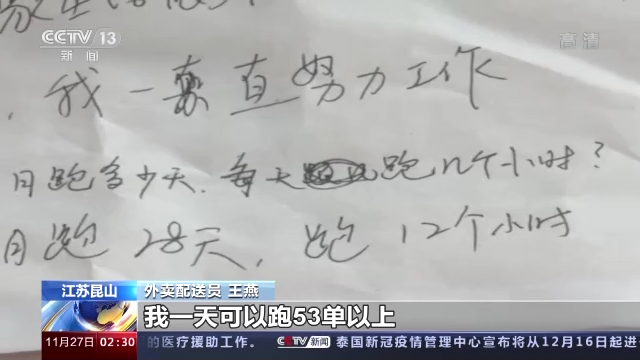 CCTV 13
新闻
高清
我一直努力工作
月跑多少天.每天跑几个小时?
月跑28天,跑12个小时
江苏昆山
外卖配送员 王燕
我一天可以跑53单以上
11月27日 02:30
的医疗援助工作。 CCTV新闻 泰国新冠疫情管理中心宣布将从12月16日起进